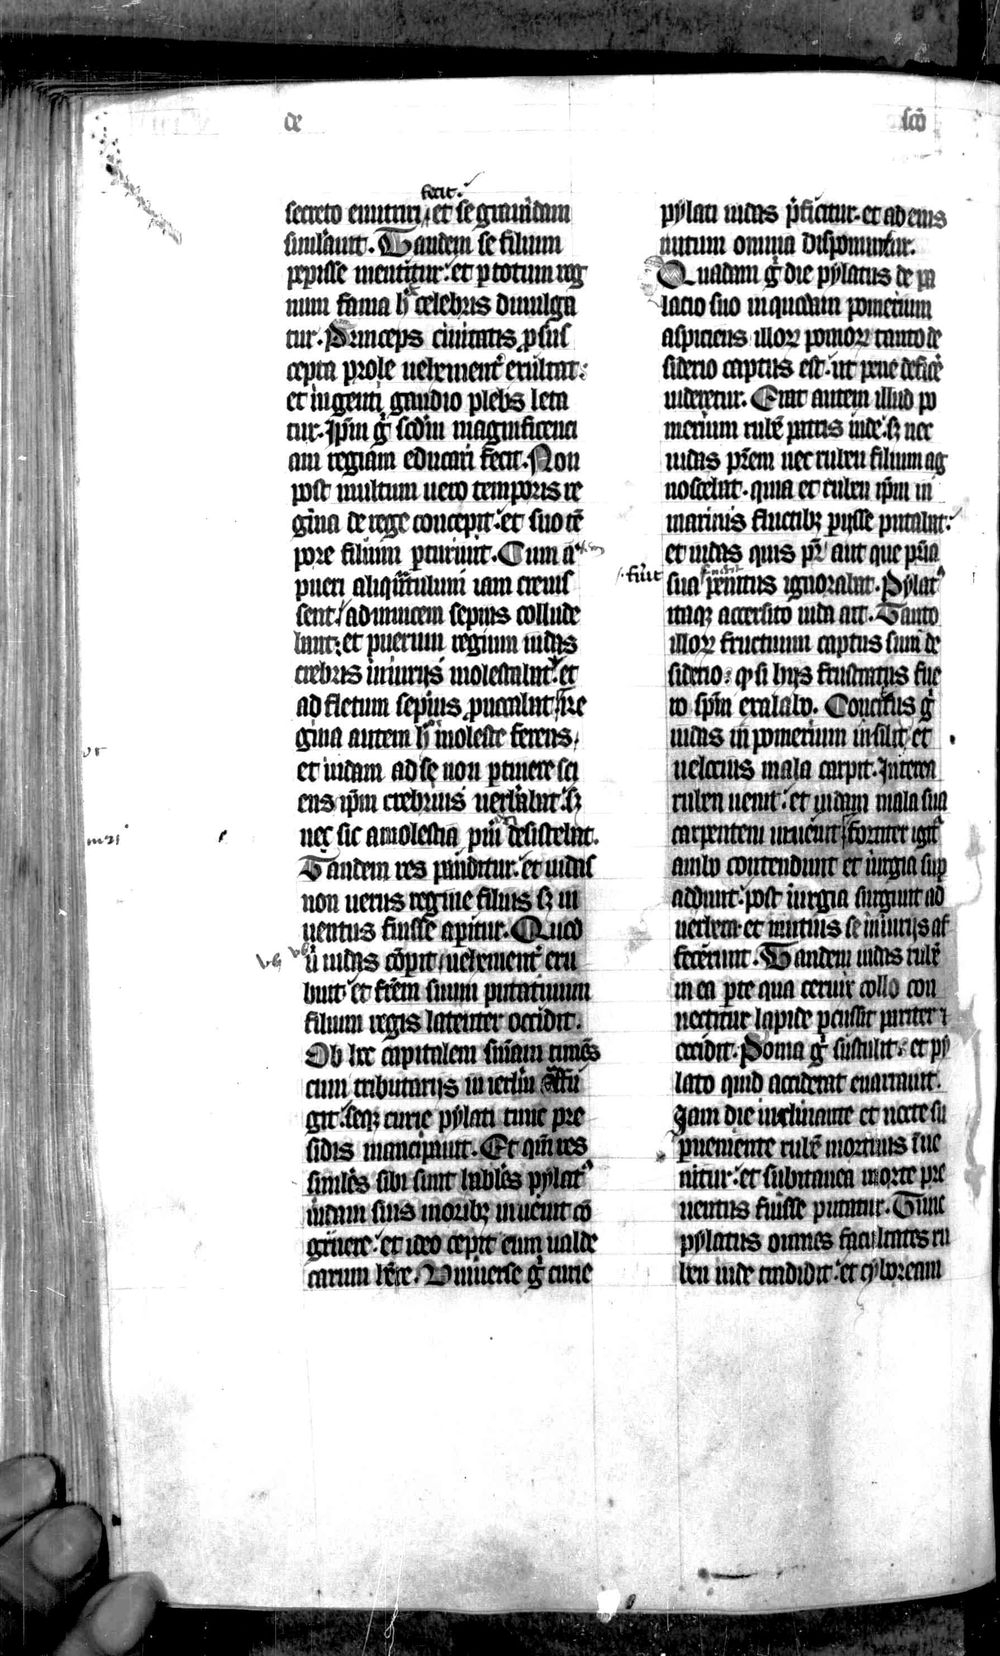 de
scō
fecit
secreto enutriri et se grauidam
simulauit. Tandem se filium
peperisse mentitur: et p totum reg
num fama h̄ celebris diuulga
tur. Princeps ciuitatis ꝓ sus
cepta prole uehement̄ exultat:
et ingenti gaudio plebs leta
tur. Ipm̄ g̊ scdm̄ magnificenci
am regiam educari fecit. Non
post multum uero temporis re
gina de rege concepit: et suo tē
pore filium pturiuit. Cum a᷑
pueri aliqⁿtulum iam creuis
sent, ad inuicem sepius collude
bant: et puerum regium iudas
crebris iniurijs molestabat: et
ad fletum sepius ꝓuocabat. Re
gina autem h̄ moleste ferens,
et iudam ad se non ptinere sci
ens ipm̄ crebrius uerbabat. sꝫ
nec sic a molestia pu̅i desistebat.
Tandem res panditur: et iudas
non uerus regine filius sꝫ in
uentus fuisse apitur. Quod
ū iudas cōpit, uehement̄ eru
buit: et frēm suum putatiuum
filium regis latenter occidit.
Ob hec capitalem sn̄iam timēs
cum tributarijs in ierlm̄ aufu
git. seqꝫ curie pylati tunc pre
sidis mancipauit. Et qm̄ res
similes sibi sunt habiles pylatꝰ
iudam suis moribꝫ inuenit cō
gruere: et ideo cepit eum ualde
carum hr̄e. Uniuerse g̊ curie
pylati iudas p̄ficitur. et ad eius
nutum omnia disponuntur.
Quadam g̊ die pylatus de pa
lacio suo in quodam pomerium
aspiciens illoꝝ pomoꝝ tanto de
siderio captus est. ut pene deficē
uideretur. Erat autem illud po
merium rubē patris iude. sꝫ nec
iudas pr̄em nec ruben filium ag
noscebat. quia et ruben ipm̄ in
marinis fluctibꝫ pijsse putabat:
et iudas quis pr̄ aut que pr̄ia
fūit
sua penitus ignorabat. Pylatꝰ
itaqꝫ accersito iuda ait. Tanto
illoꝝ fructuum captus sum de
siderio: ꝙ si hijs frustratus fue
ro spm̄ exalabo. Concitus g̊
iudas in pomerium insilit: et
uelocius mala carpit. Interea
ruben uenit: et iudam mala sua
carpentem inuenit. Fortiter igitᷣ
ambo contendunt et iurgia sup
addunt. post iurgia surgunt ad
uerbera. et mutuis se iniurijs af
fecerunt. Tandem iudas rubē
in ea pte qua ceruix collo con
nectitur lapide pcussit pariter ⁊
occidit. Poma g̊ sustulit: et py
lato quid acciderat enarrauit.
Iam die inclinante et nocte su
pueniente rubē mortuus īue
nitur: et subitanea morte pre
uentus fuisse putatur. Tunc
pylatus omnes facultates ru
ben iude tradidit: et cyboream